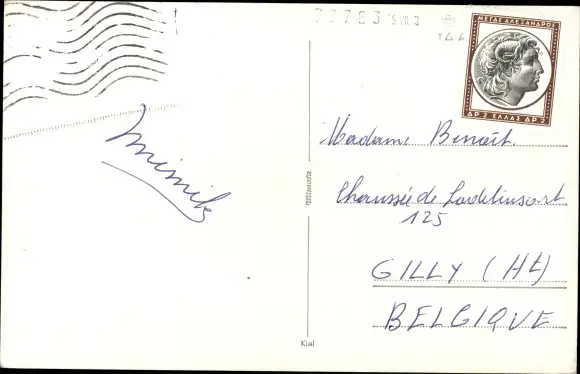 ΜΕΓΑΣ ΑΛΕΞΑΝΔΡΟΣ
ΔΡ 2 ΕΛΛΑΣ ΔΡ 2
Madame Benoît.
Chaussée de Lodelinsart
125
GILLY (Ht)
BELGIQUE
Kiel